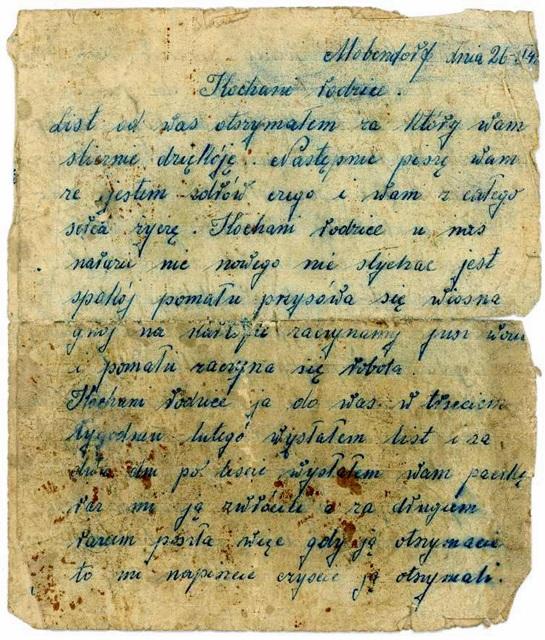 Mobendorf dnia 26
Kochani rodzice.
List od was otszymałem za który wam
sticznie dziękóję. Następnie piszę wam
że jestem zdrów czego i wam z całego
serca życzę. Kochani rodzice u nas
narazie nic nowego nie słychać jest
spokój pomału przysówa się wiosna
gnój na kartofle zaczynamy jusz
i pomału zaczyna się robota.
Kochani rodzice ja do was w trzeciem
tygodniu lutego wysłałem list i za
dwa dni po liście wysłałem wam paczkę
raz mi ją zwrócili a za drugiem
razem poszła więc gdy ją otszymacie
to mi napiszcie czyście ją otszymali.